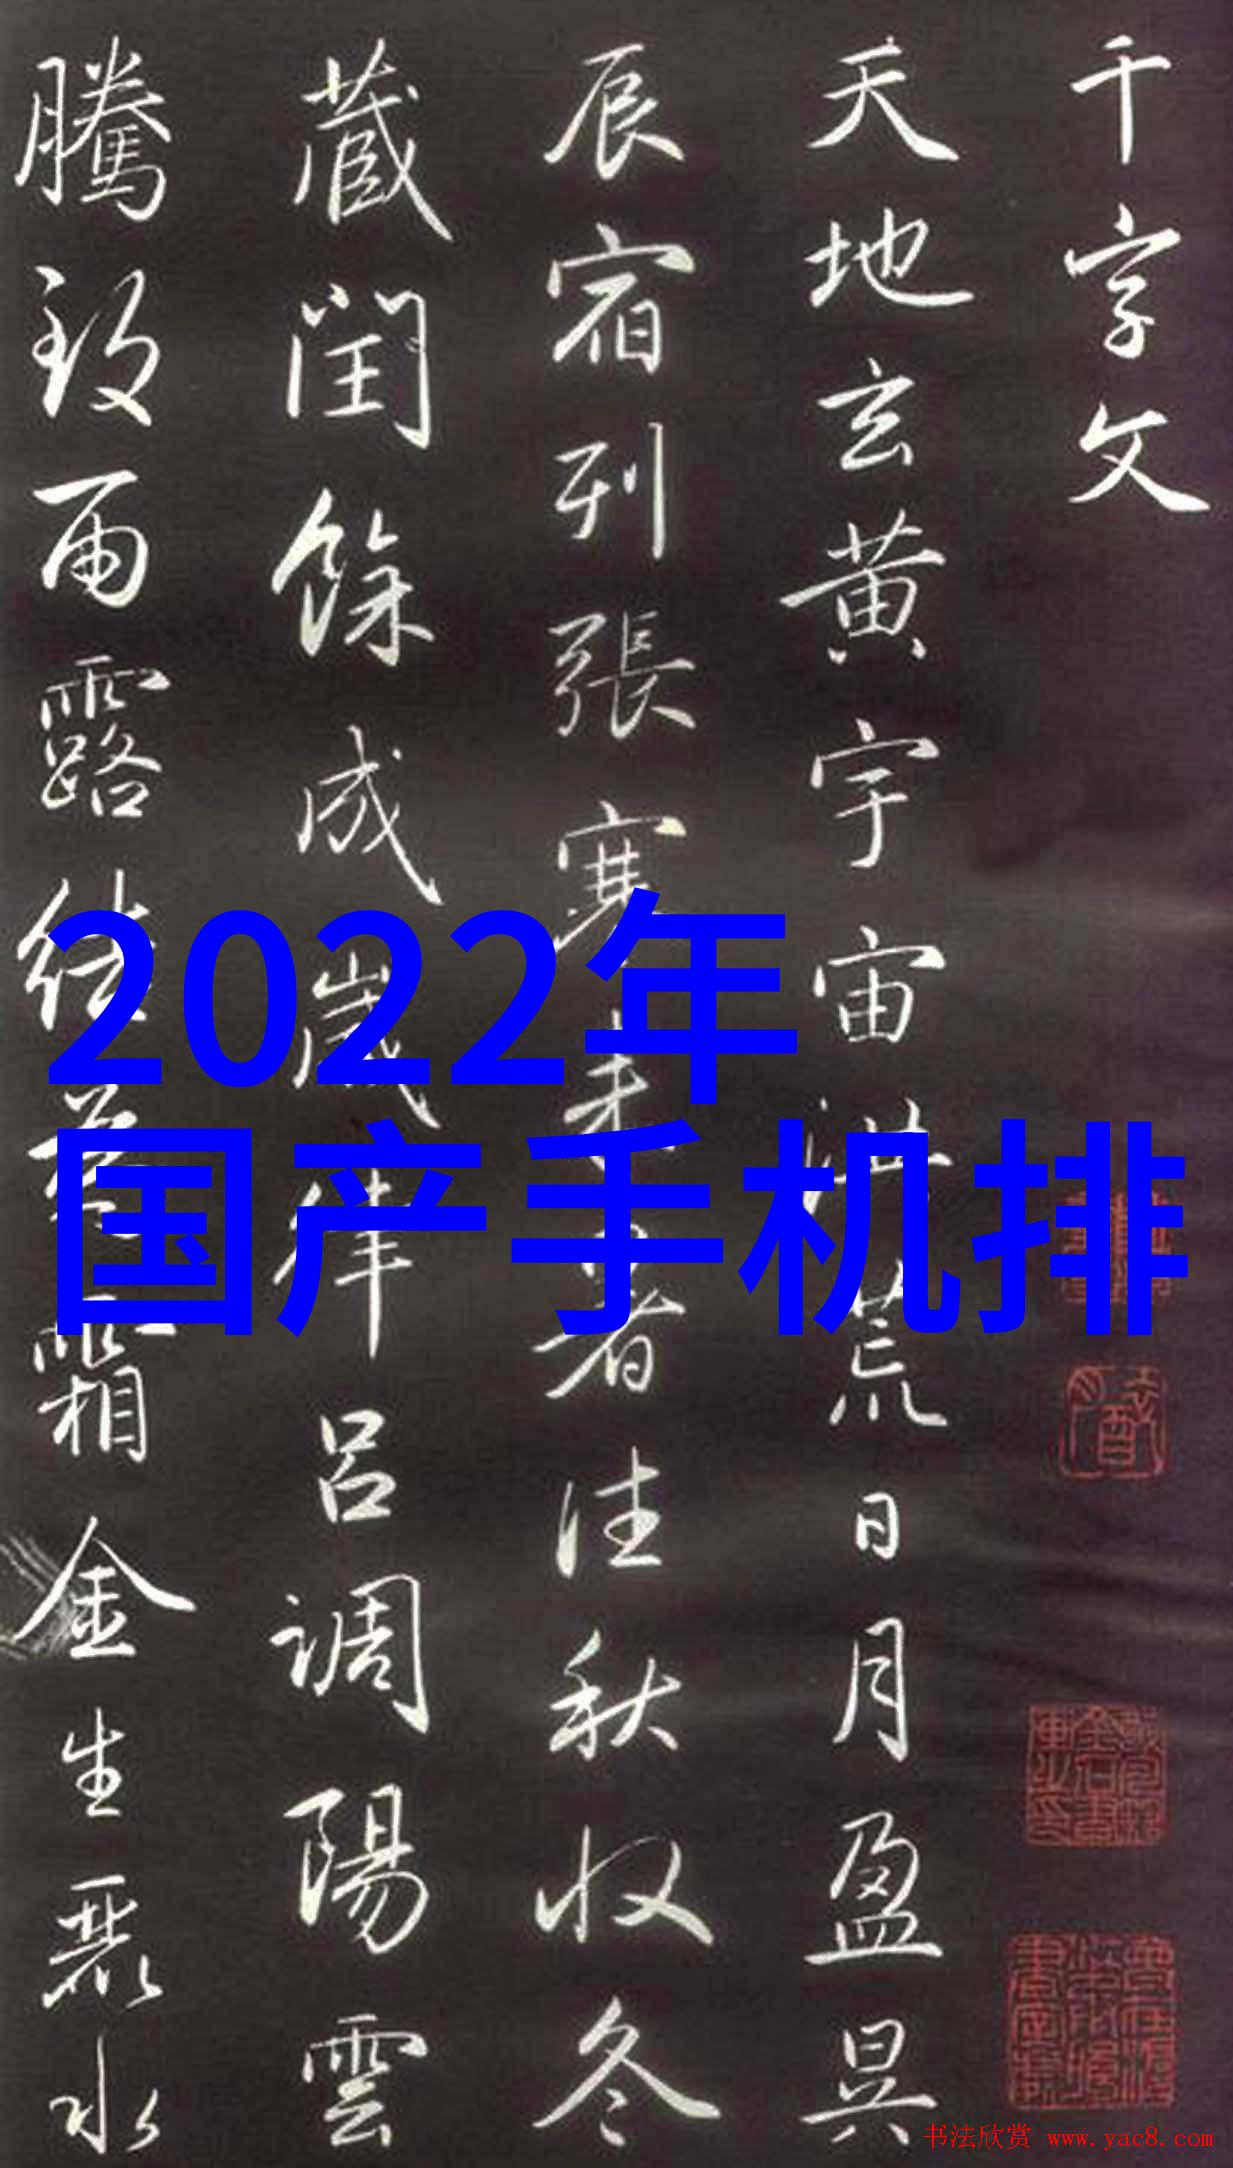 千字文
天地玄黄宇宙洪荒日月盈昃
辰宿列張寒来暑往秋收冬
藏閏餘成歲律呂調陽雲
騰致雨露結為霜金生麗水
2022年
国产手机排
书法欣赏 www.yac8.com